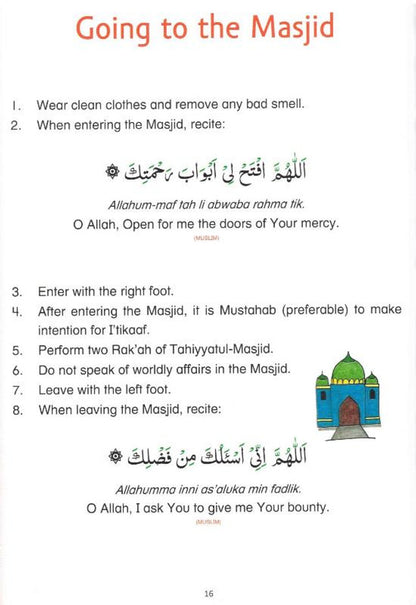 Going to the Masjid
1. Wear clean clothes and remove any bad smell.
2. When entering the Masjid, recite:
اَللّٰهُمَّ افْتَحْ لِيْ اَبْوَابَ رَحْمَتِكَ
Allahum-maf tah li abwaba rahma tik.
O Allah, Open for me the doors of Your mercy.
(MUSLIM)
3. Enter with the right foot.
4. After entering the Masjid, it is Mustahab (preferable) to make
intention for I'tikaaf.
5. Perform two Rak'ah of Tahiyyatul-Masjid.
6. Do not speak of worldly affairs in the Masjid.
7. Leave with the left foot.
8. When leaving the Masjid, recite:
اَللّٰهُمَّ اِنِّيْ اَسْئَلُكَ مِنْ فَضْلِكَ
Allahumma inni as'aluka min fadlik.
O Allah, I ask You to give me Your bounty.
(MUSLIM)
16